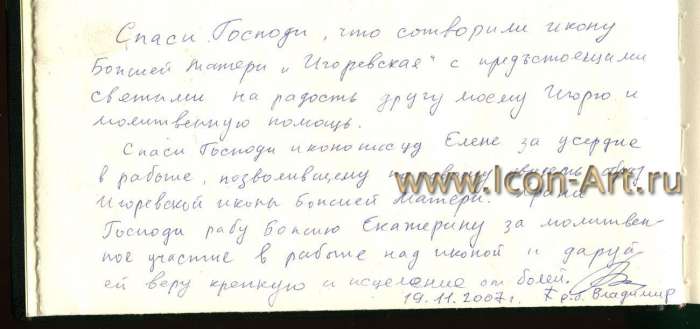 Спаси Господи, что сотворили икону
Божией Матери „Игоревская" с предъстоящими
святыми на радость другу моему Игорю и
молитвенную помощь.
Спаси Господи иконописцу Елене за усердие
в работе, позволившему
www.Icon-Art.ru
Игоревской иконы Божией Матери.
Господи рабу Божию Екатерину за молитвен-
ное участие в работе над иконой и даруй
ей веру крепкую и исцеление от болей.
19.11.2007г. р.б. Владимир